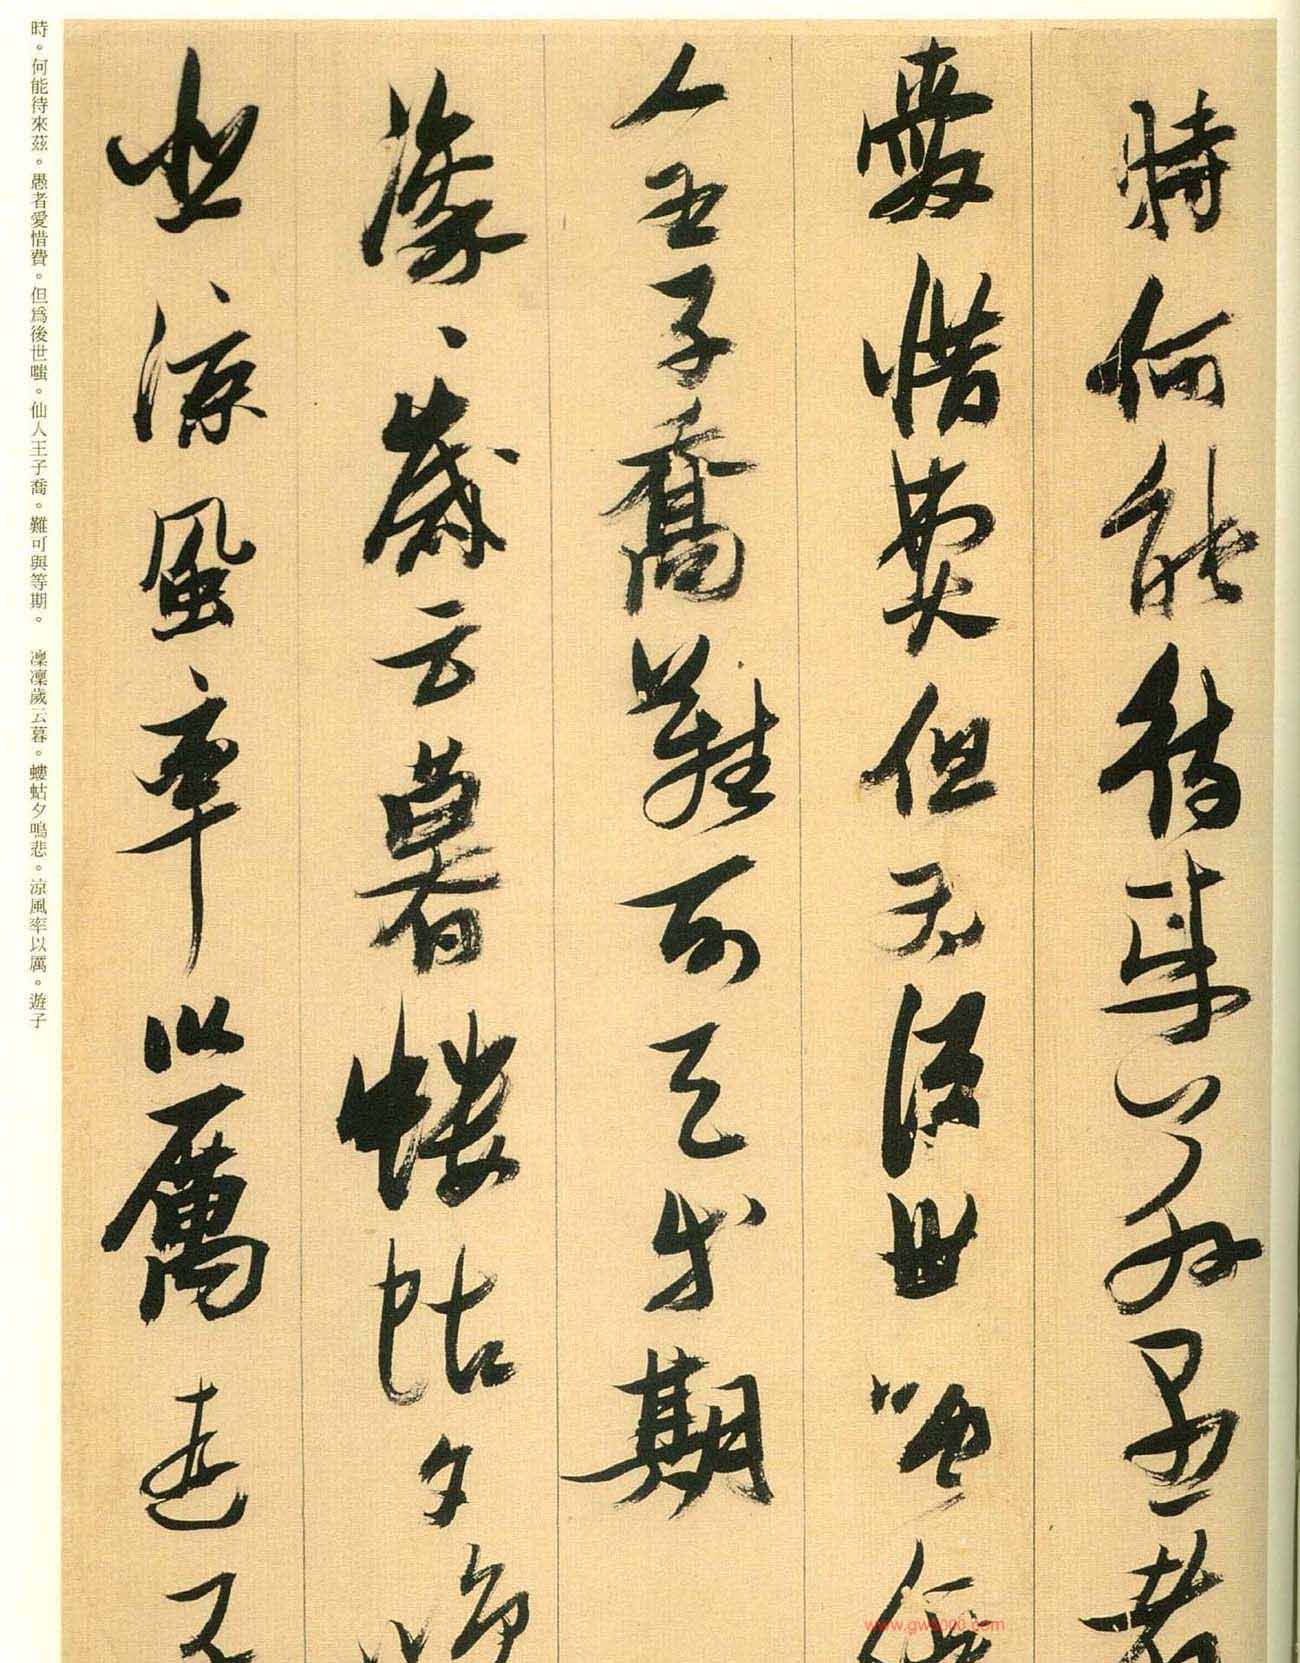 時何能待來茲愚者
愛惜費但為後世嗤仙
人王子喬難可與等期
凜〻歲云暮螻蛄夕鳴
悲涼風率以厲遊子
時。何能待來茲。愚者愛惜費。但爲後世嗤。仙人王子喬。難可與等期。　凜凜歲云暮。螻蛄夕鳴悲。涼風率以厲。遊子